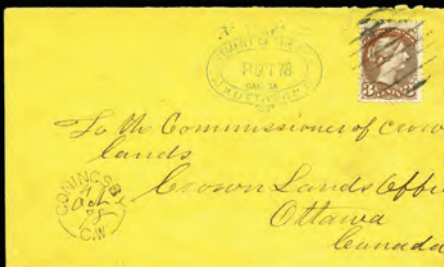 78
CAN DA
3 3
To the Commissioner of Crow
lands
Crown Lands Offi
Ottawa
Canada
CONINGSB
Oct
78
C.W